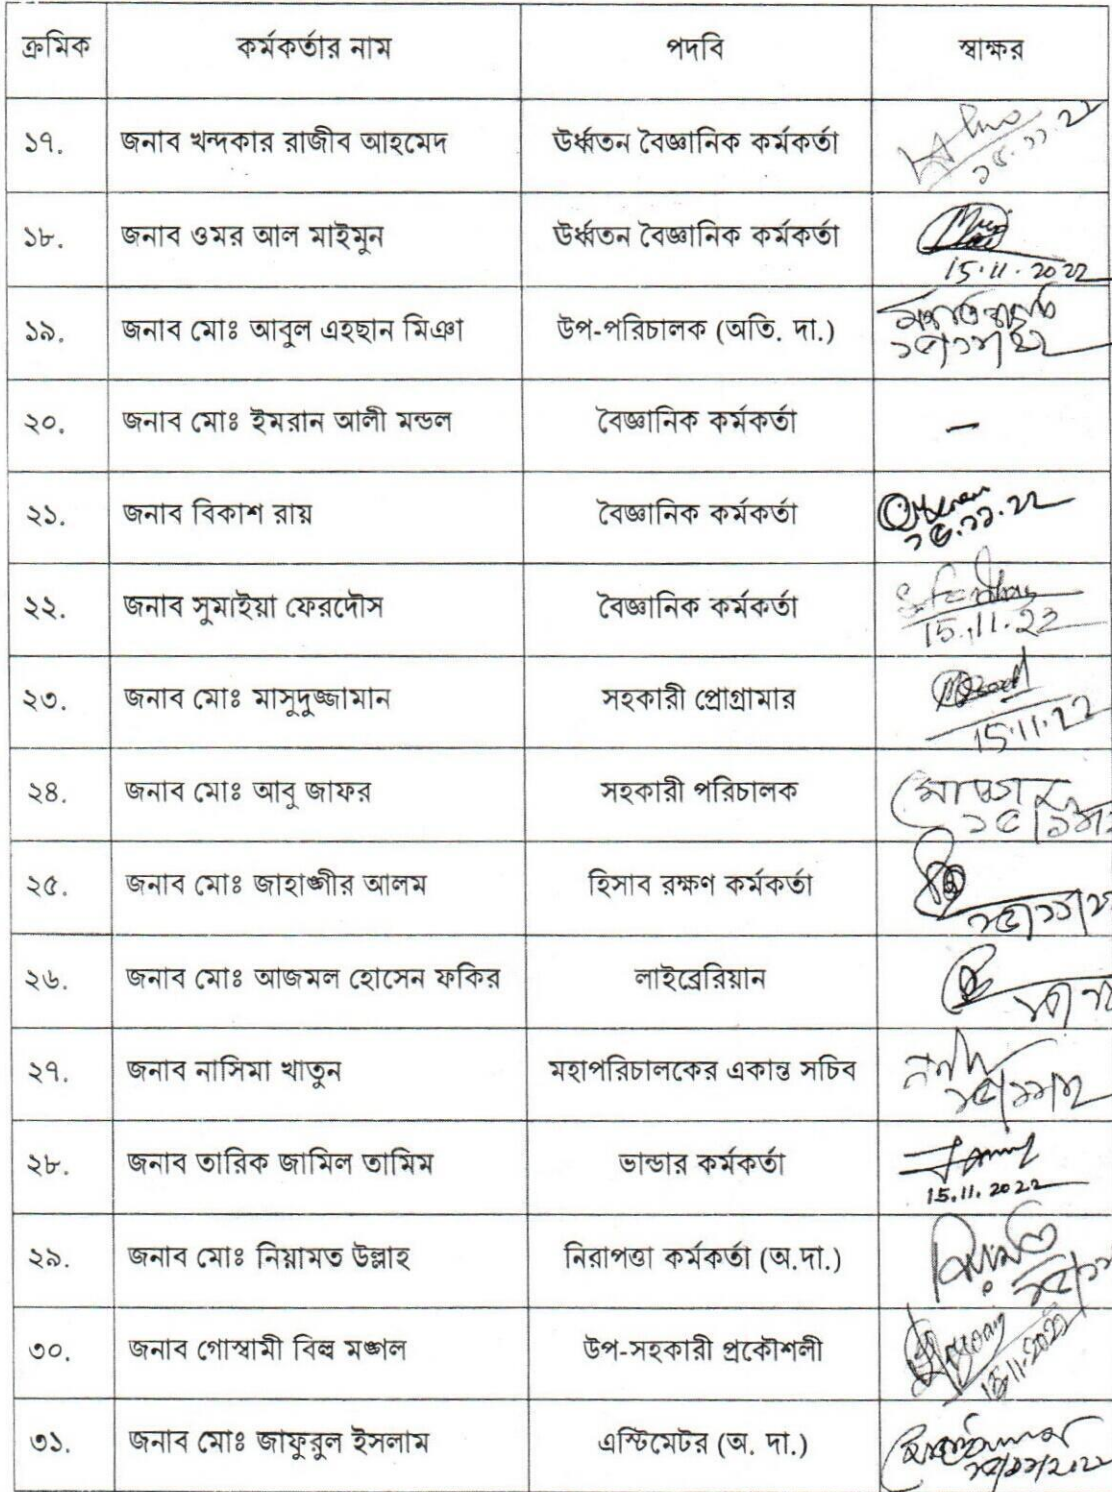 ক্রমিক কর্মকর্তার নাম পদবি স্বাক্ষর
১৭. জনাব খন্দকার রাজীব আহমেদ ঊর্ধ্বতন বৈজ্ঞানিক কর্মকর্তা ১৫.১১.২২
১৮. জনাব ওমর আল মাইমুন ঊর্ধ্বতন বৈজ্ঞানিক কর্মকর্তা
15.11.2022
১৯. জনাব মোঃ আবুল এহছান মিঞা উপ-পরিচালক (অতি. দা.)
১৫/১১/২২
২০. জনাব মোঃ ইমরান আলী মন্ডল বৈজ্ঞানিক কর্মকর্তা –
২১. জনাব বিকাশ রায় বৈজ্ঞানিক কর্মকর্তা
১৫.১১.২২
২২. জনাব সুমাইয়া ফেরদৌস বৈজ্ঞানিক কর্মকর্তা
15.11.22
২৩. জনাব মোঃ মাসুদুজ্জামান সহকারী প্রোগ্রামার
15.11.22
২৪. জনাব মোঃ আবু জাফর সহকারী পরিচালক
২৫. জনাব মোঃ জাহাঙ্গীর আলম হিসাব রক্ষণ কর্মকর্তা
২৬. জনাব মোঃ আজমল হোসেন ফকির লাইব্রেরিয়ান
২৭. জনাব নাসিমা খাতুন মহাপরিচালকের একান্ত সচিব
২৮. জনাব তারিক জামিল তামিম ভান্ডার কর্মকর্তা
15.11.2022
২৯. জনাব মোঃ নিয়ামত উল্লাহ নিরাপত্তা কর্মকর্তা (অ.দা.)
৩০. জনাব গোস্বামী বিল্ব মঙ্গল উপ-সহকারী প্রকৌশলী
15.11.2022
৩১. জনাব মোঃ জাফুরুল ইসলাম এস্টিমেটর (অ. দা.)
১৫/১১/২০২২